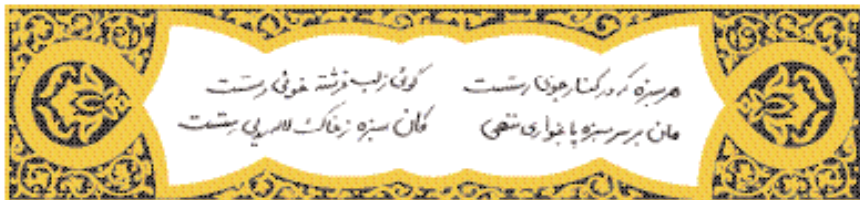 هر سبزه که در کنار جوی رستست گوئی ز لب فرشته خوئی رستست
هان بر سر سبزه پا بخواری ننهی کان سبزه ز خاک لاله رویی رستست